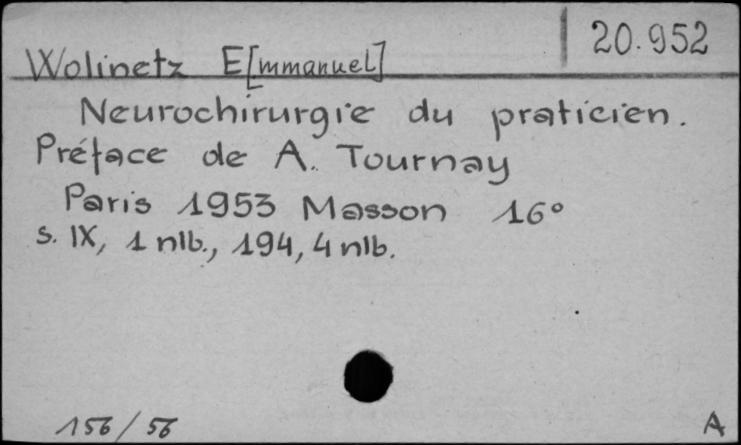 20.952
Wolinetz E[mmanuel]
Neurochirurgie du praticien.
Préface de A. Tournay
Paris 1953 Masson 16°
s. IX, 1 nlb., 194, 4 nlb.
156/56
A